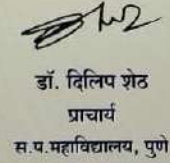 डॉ. दिलिप शेठ
प्राचार्य
स.प.महाविद्यालय, पुणे